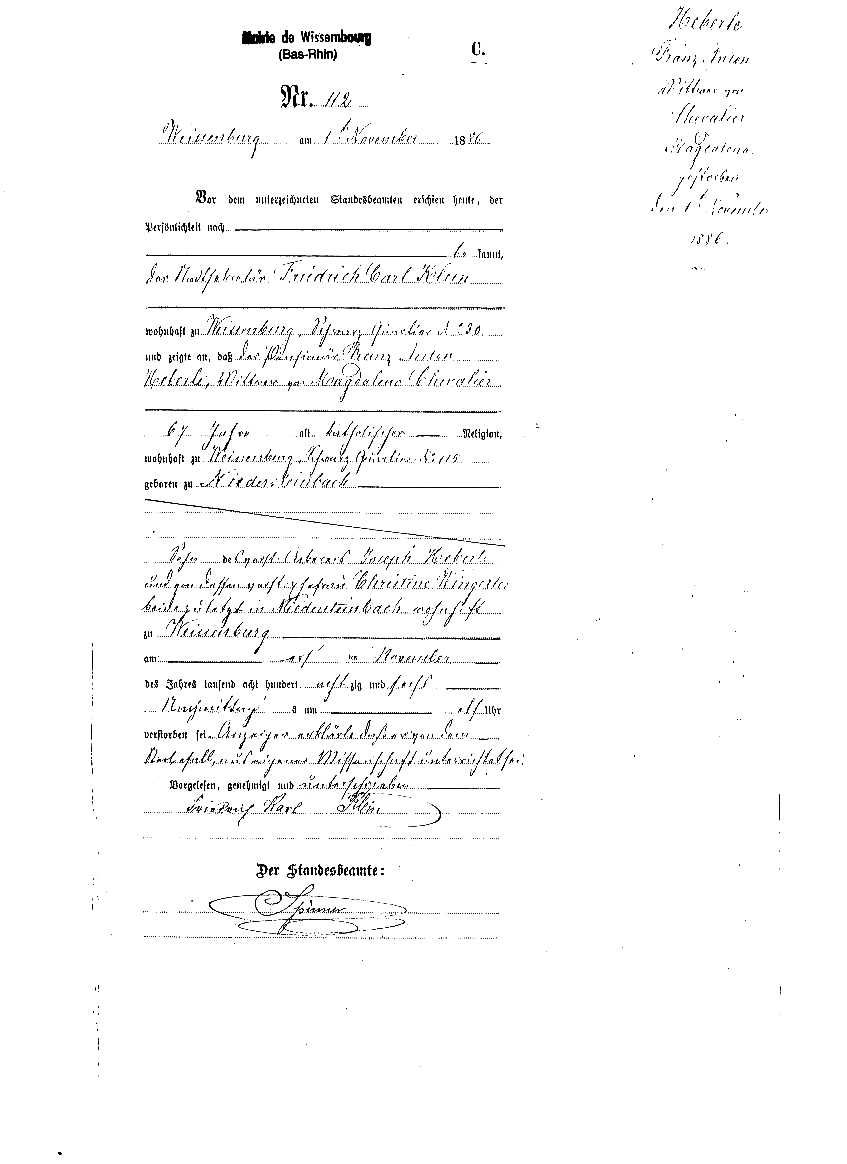 Mairie de Wissembourg
(Bas-Rhin)
C.
Nr. 112
Weissenburg am 1t November 1886
Vor dem unterzeichneten Standesbeamten erschien heute, der
Persönlichkeit nach
be kannt,
der Friedrich Carl Klein
wohnhaft zu Weissenburg, Schwarz Quartier No 30
und zeigte an, daß der Franz Anton
Heberle, Wittwer von Magdalena Chevalier
67 Jahre alt katholischer Religion,
wohnhaft zu Weissenburg, Schwarz Quartier No 115
geboren zu Niedersteinbach
Sohn des verst. Ackerers Joseph Heberle
und von dessen verst. Ehefrau Christine
beide zuletzt in Niedersteinbach wohnhaft
zu Weissenburg
am November
des Jahres tausend acht hundert acht zig und sechs
Nachmittags um elf Uhr
verstorben sei. Anzeiger erklärte daß er von dem
Sterbefall aus eigener Wissenschaft unterrichtet sei.
Vorgelesen, genehmigt und unterschrieben
Friedrich Karl Klein
Der Standesbeamte:
Heberle
Franz Anton
Wittwer von
Chevalier
Magdalena
gestorben
den 1t November
1886.